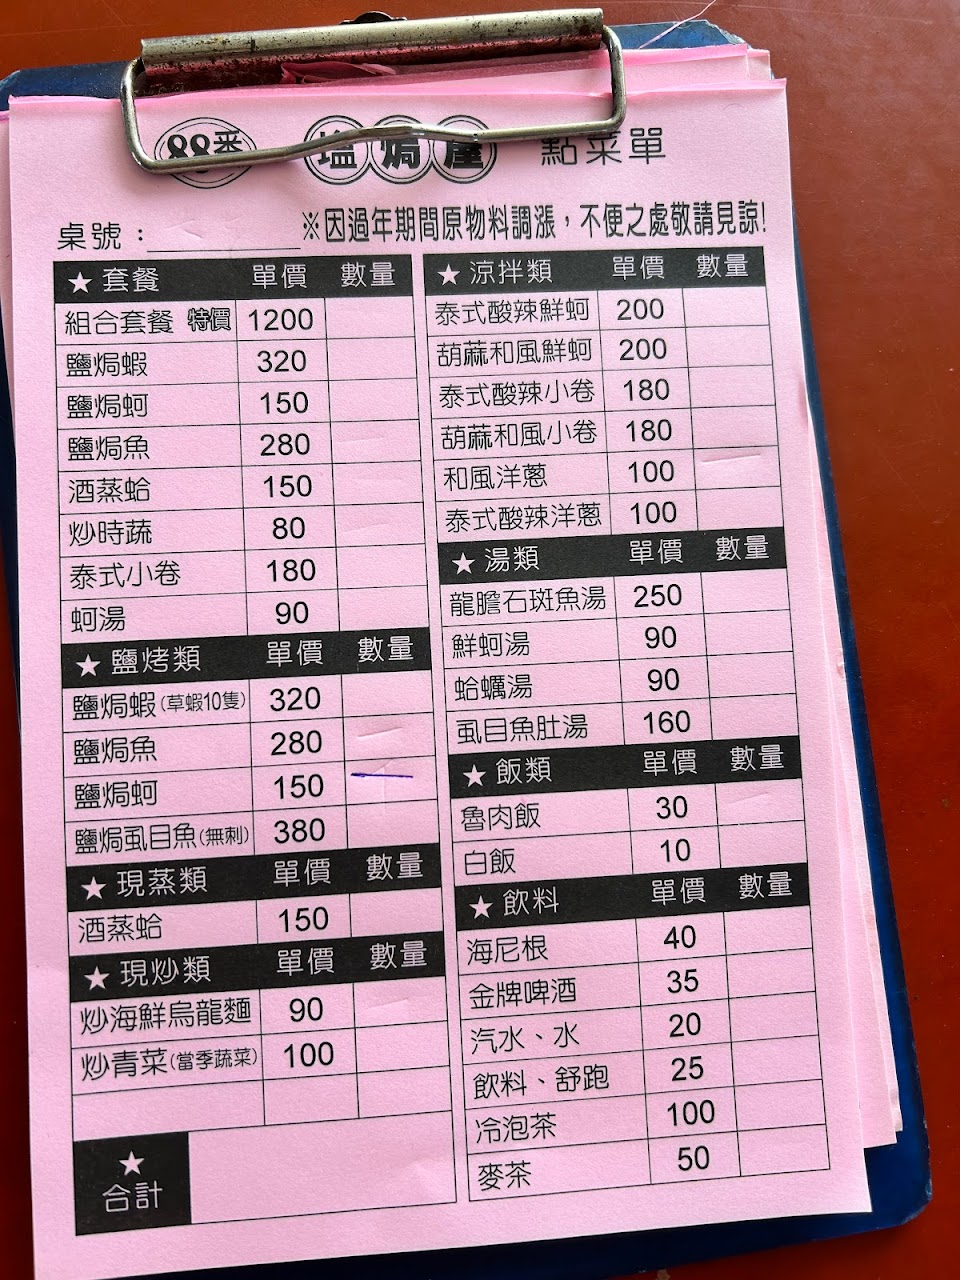 88番 塩焗屋 點菜單
桌號：
※因過年期間原物料調漲，不便之處敬請見諒!
★ 套餐 單價 數量
組合套餐 特價 1200
鹽焗蝦 320
鹽焗蚵 150
鹽焗魚 280
酒蒸蛤 150
炒時蔬 80
泰式小卷 180
蚵湯 90
★ 鹽烤類 單價 數量
鹽焗蝦(草蝦10隻) 320
鹽焗魚 280
鹽焗蚵 150
鹽焗虱目魚(無刺) 380
★ 現蒸類 單價 數量
酒蒸蛤 150
★ 現炒類 單價 數量
炒海鮮烏龍麵 90
炒青菜(當季蔬菜) 100
★
合計
★ 涼拌類 單價 數量
泰式酸辣鮮蚵 200
胡蔴和風鮮蚵 200
泰式酸辣小卷 180
胡蔴和風小卷 180
和風洋蔥 100
泰式酸辣洋蔥 100
★ 湯類 單價 數量
龍膽石斑魚湯 250
鮮蚵湯 90
蛤蠣湯 90
虱目魚肚湯 160
★ 飯類 單價 數量
魯肉飯 30
白飯 10
★ 飲料 單價 數量
海尼根 40
金牌啤酒 35
汽水、水 20
飲料、舒跑 25
冷泡茶 100
麥茶 50